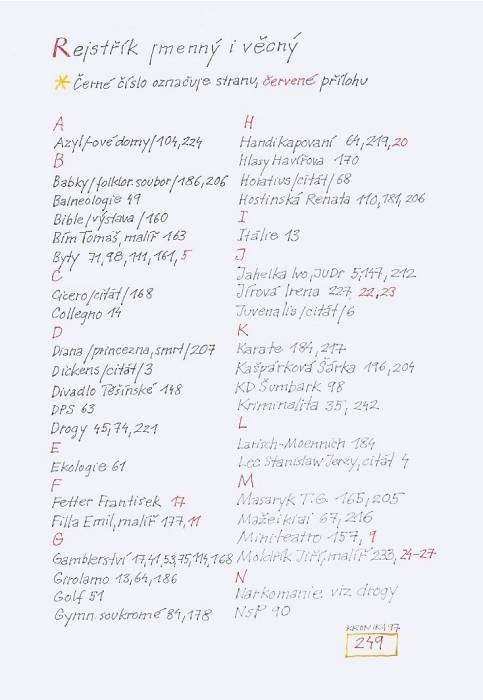 Rejstřík jmenný i věcný
* Černé číslo označuje stranu, červené přílohu
A
Azyl/-ové domy/104,224
B
Babky/folklor.soubor/186,206
Balneologie 49
Bible/výstava/160
Bím Tomáš, malíř 163
Byty 71,98,111,161,5
C
Cicero/citát/168
Collegno 14
D
Diana/princezna, smrt/207
Dickens/citát/3
Divadlo Těšínské 148
DPS 63
Drogy 45,74,221
E
Ekologie 61
F
Fetter František 17
Filla Emil, malíř 177,11
G
Gamblerství 17,41,53,75,114,168
Girolamo 13,64,186
Golf 51
Gymn soukromé 84,178
H
Handikapovaní 64,219,20
Hlasy Havířova 170
Horatius/citát/68
Hostinská Renata 110,181,206
I
Itálie 13
J
Jahelka Ivo, JUDr 5,147,212
Jírová Irena 227, 22,23
Juvenalis/citát/6
K
Karate 184,217
Kašpárková Šárka 196,204
KD Šumbark 98
Kriminalita 35,242
L
Larisch-Moennich 184
Lec Stanislaw Jerzy, citát 4
M
Masaryk T.G. 165,205
Mažeikiai 67,216
Miniteatro 157,9
Moldřík Jiří, malíř 233,24-27
N
Narkomanie viz drogy
NsP 90
KRONIKA 97
249